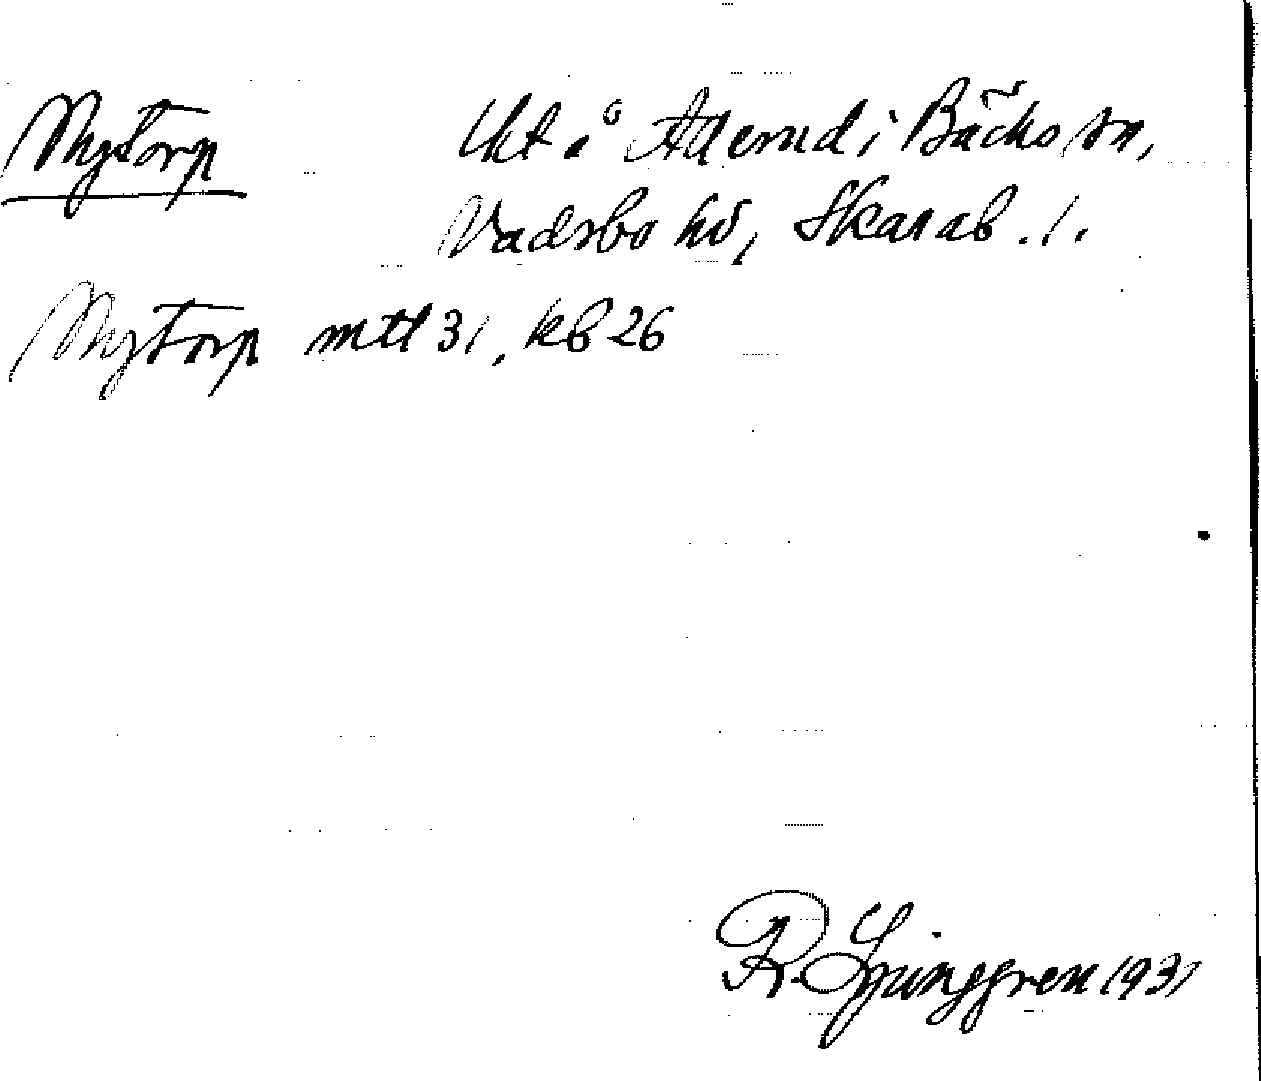 Nytorp
Lht å Allerud i Bäcks sn,
Vadsbo hd, Skarab. l.
Nytorp mtl 31, kb 26
R. Ljunggren 1931